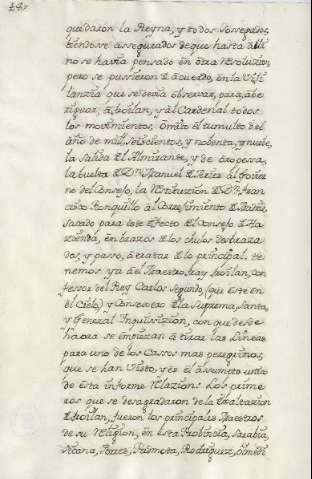 quedaron la Reyna, y todos sosegados,
tiendose asegurados de que hasta alli
no se havia pensado en otra Resoluzion,
pero se pussieron de acuerdo, en la Viji
lanzia que se devia observar, para abe
riguar, á Froilan, y al Cardenal todos
los movimientos. Omito el tumulto del
año de mill, seiscientos, y nobenta, y nueve,
la salida del Almirante, y de Oropesa,
la buelta de Dn. Manuel de Arias al Govier
no del Consejo, la Restituzion de Dn. Fran
cisco Ronquillo al Corregimiento de Madrid,
sacado para este efecto del Consejo de Ha
zienda, en brazos de los chulos desbraza
dos, y passo, á tratar de lo principal. te
nemos ya al Maestro, fray Froilan, con
fessor del Rey Carlos Segundo, (que esté en
el Cielo) y Consexero de la Suprema, Santa,
y General Inquisizion, con que desde
haora se empiezan á tirar las Lineas
para uno de los Cassos mas peregrinos,
que se han Visto, y es el assumpto unico
de esta informe Relazion. Los prime
ros que se desagradaron de la Exaltazion
de Froilan, fueron los principales Maestros
de su Religion, en esta Provincia, Arabia,
Noana, Perez, Reimosa, Rodriguez,